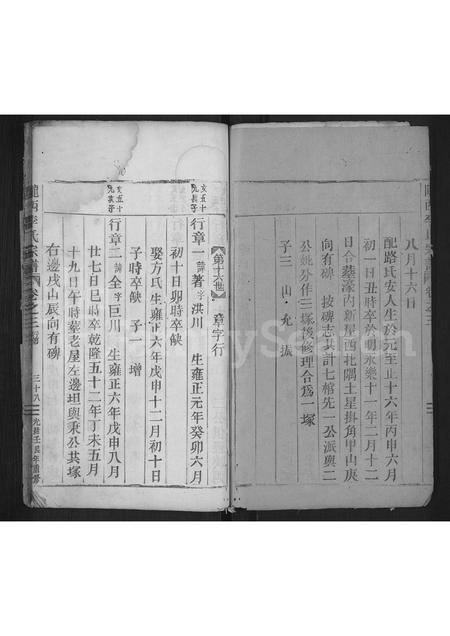 八月十六日
配路氏安人生於元至正十六年丙申六月
初一日丑時卒於明永樂十一年二月十二
日合葬濠內新屋西北隅土星掛角甲山庚
向有碑 按碑志共計七棺先一公派與二
公姚外作三塚後修理合為一塚
子三 山 允 振
第十六世 章字行
文五十九長子
行章一諱著字洪川 生雍正元年癸卯六月
初十日卯時卒缺
娶方氏生雍正六年戊申十二月初十日
子時卒缺 子一 增
文五十九次子
行章二諱全字巨川 生雍正六年戊申八月
廿七日巳時卒乾隆五十二年丁未五月
十九日午時葬老屋左邊坦與秉公共塚
右邊戌山辰向有碑
隴西李氏宗譜 卷之三 三十八 光緒壬辰年重修
MySAM